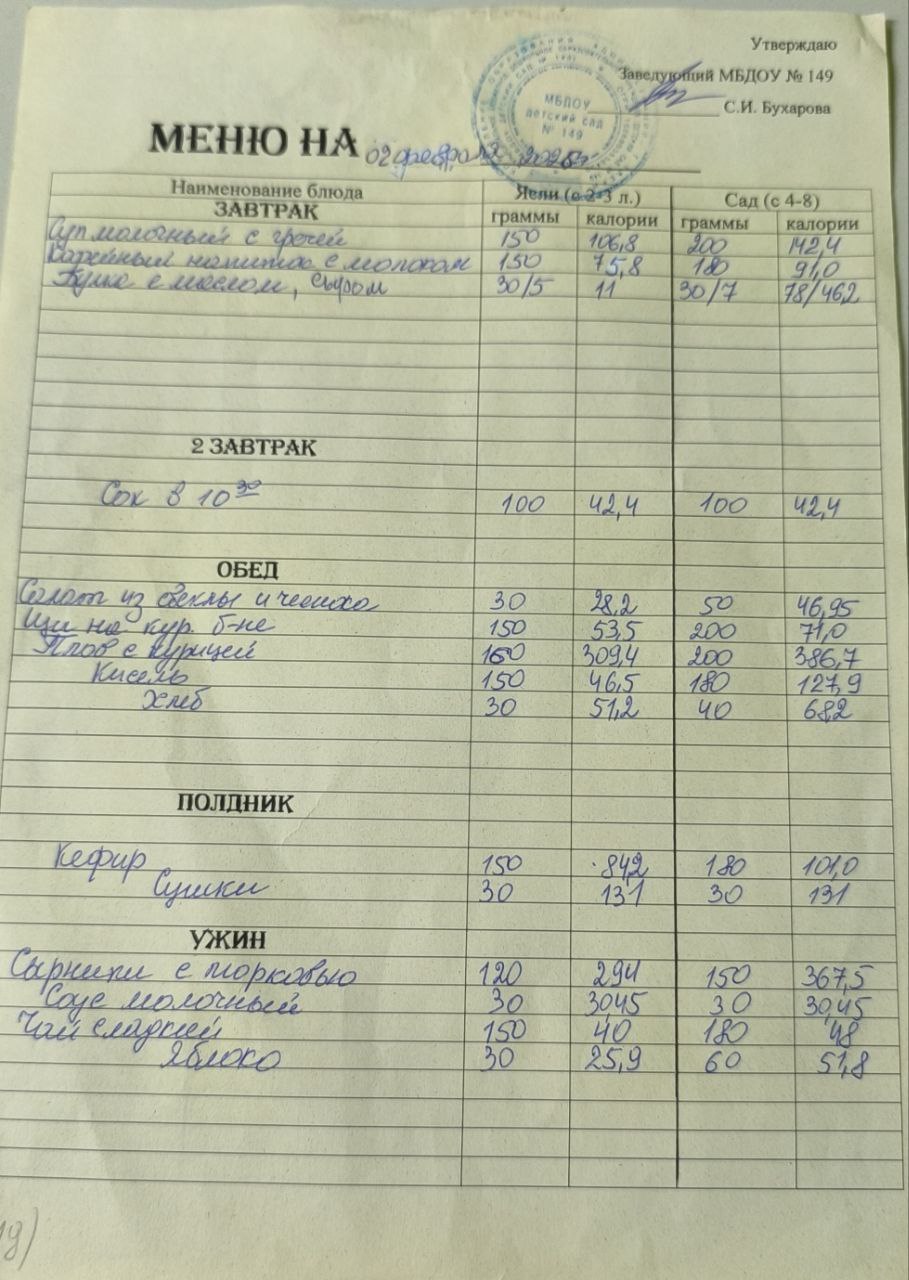 Утверждаю
Заведующий МБДОУ № 149
С.И. Бухарова
МБДОУ
детский сад
№ 149
МЕНЮ НА 02 февраля
Наименование блюда Ясли (с 2-3 л.) Сад (с 4-8)
ЗАВТРАК граммы калории граммы калории
Суп молочный с гречей 150 106,8 200 142,4
Кофейный напиток с молоком 150 75,8 180 91,0
Булка с маслом, сыром 30/5 11 30/7 78/46,2
2 ЗАВТРАК
Сок в 10 30 100 42,4 100 42,4
ОБЕД
Салат из свеклы и чеснока 30 28,2 50 46,95
Щи на кур. б-не 150 53,5 200 71,0
Плов с курицей 160 309,4 200 386,7
Кисель 150 46,5 180 127,9
Хлеб 30 51,2 40 68,2
ПОЛДНИК
Кефир 150 84,2 180 101,0
Сушки 30 131 30 131
УЖИН
Сырники с морковью 120 294 150 367,5
Соус молочный 30 30,45 30 30,45
Чай сладкий 150 40 180 48
Яблоко 30 25,9 60 51,8